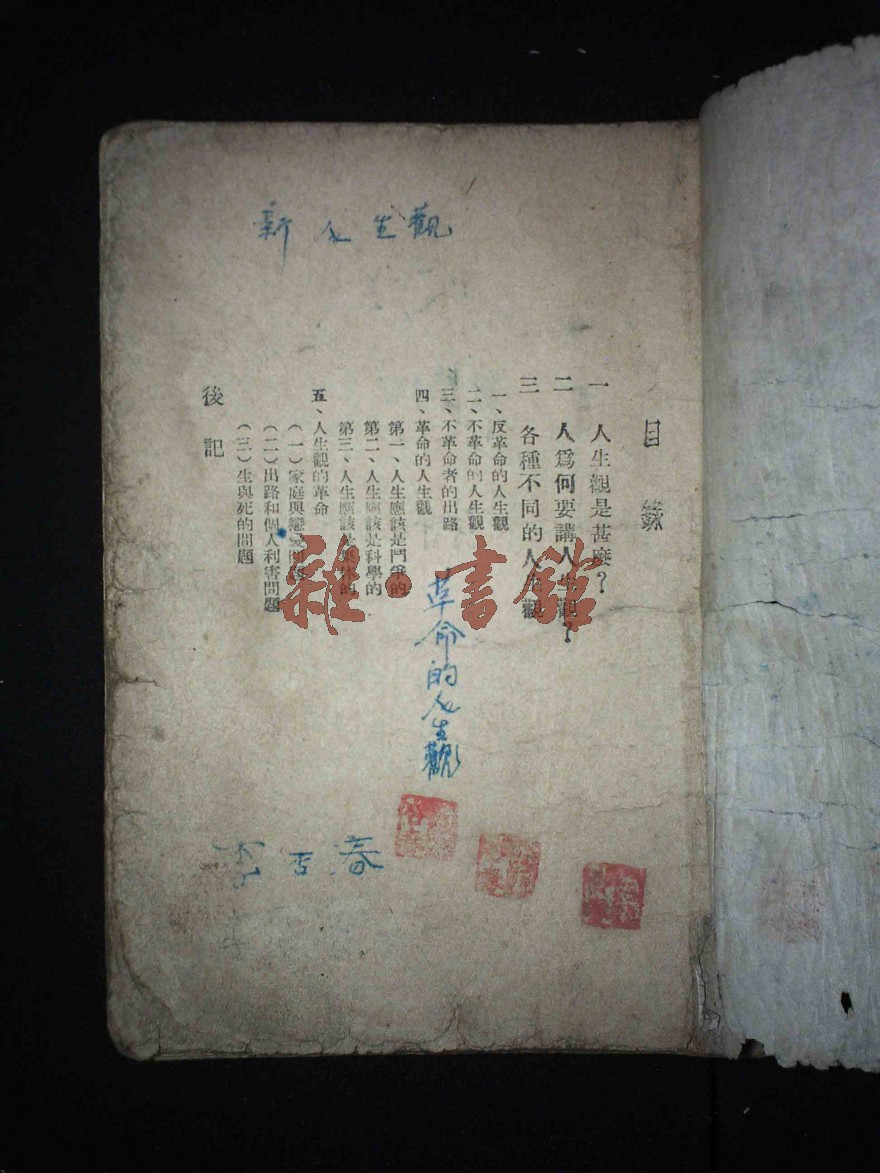 新人生觀
目錄
一 人生觀是甚麼？
二 人爲何要講人生觀？
三 各種不同的人生觀
一、反革命的人生觀
二、不革命的人生觀
三、不革命者的出路
四、革命的人生觀
第一、人生應該是鬥爭的
第二、人生應該是科學的
第三、人生應該是的
五、人生觀的革命
（一）家庭與戀愛問題
（二）出路和個人利害問題
（三）生與死的問題
後記
雜·書館
革命的人生觀
春